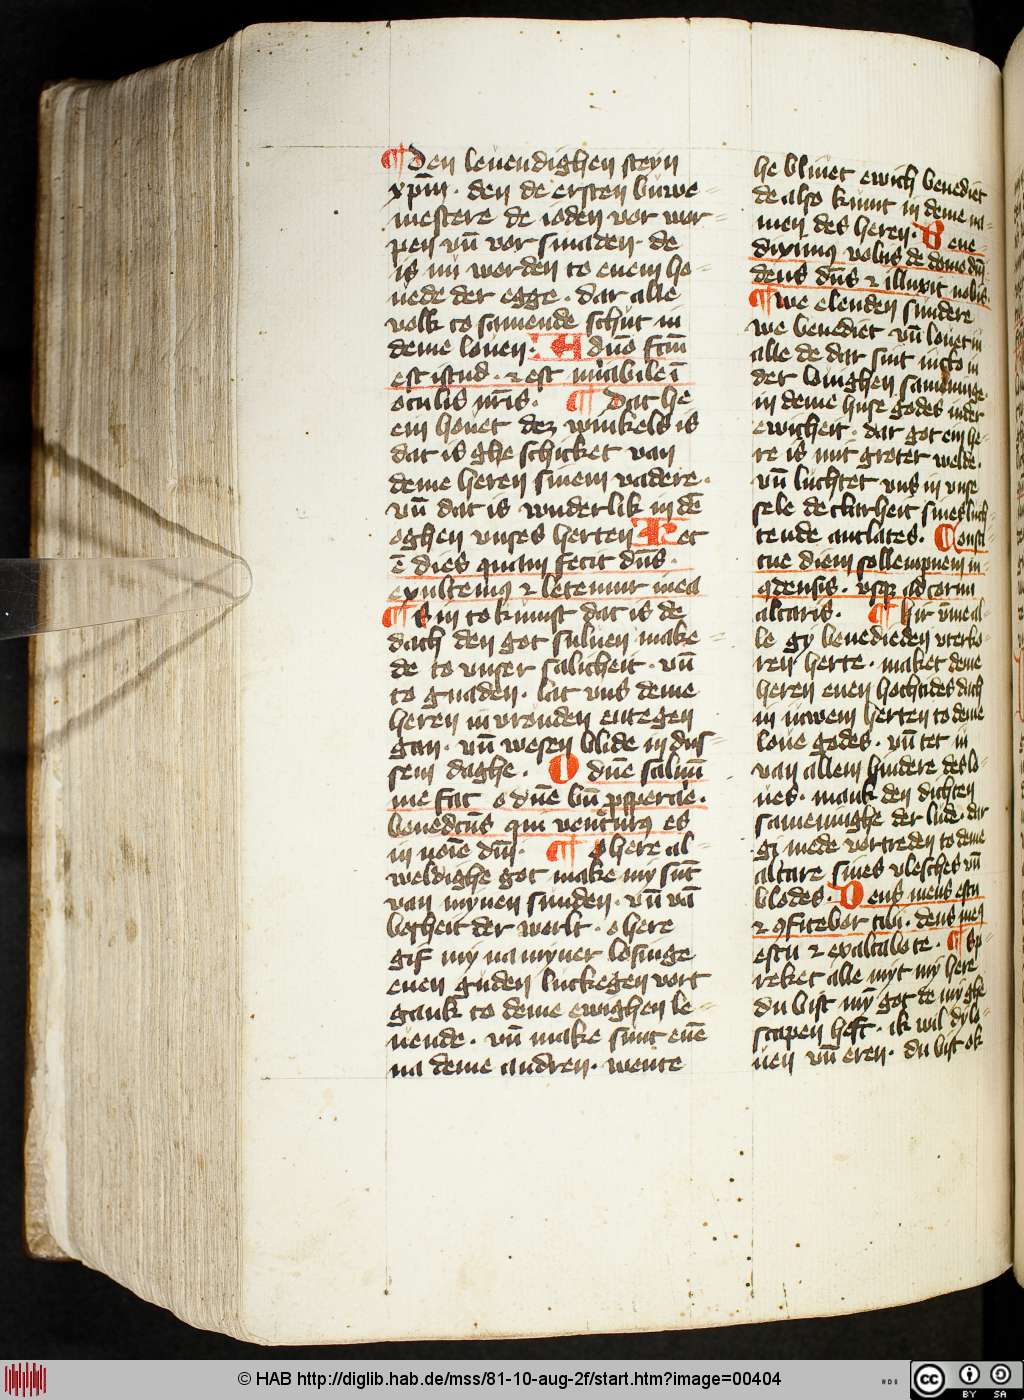 ¶ Den leuendighen steyn
xp̄m · den de ersten buwe-
mestere de ioden vor wor-
pen vn̄ vor smaden · de
is nu worden to enem ho-
uede der egge · dar alle
volk to samende schut in
deme louen · A dn̄o fc̄m
est istud · ⁊ est mirabile ī
oculis nr̄is · ¶ Dat he
ein houet dez winkels is
dat is ghe schicket van
deme heren sinem vadere ·
vn̄ dat is wnderlik in dē
oghen vnses herten H ec
ē dies quam fecit dn̄s ·
exultemꝰ ⁊ letemur in ea
¶ Sin to kumst dat is de
dach den got suluen make-
de to vnser salicheit · vn̄
to gnaden · lat vns deme
heren in vrouden entegen
gan · vn̄ wesen blide in dus-
sem daghe · O dn̄e saluū
me fac o dn̄e bn̄ prosperare ·
benedictꝰ qui venturꝰ es
in noīe dn̄i · ¶ O here al-
weldighe got make my sunt
van mynen sunden · vn̄ vā
bosheit der werlt · o here
gif my na myner losinge
enen guden luckegen vort
gank to deme ewighen le-
uende · vn̄ make sunt enē
na deme andren · wente
he bliuet ewich benediet
de also kumt in deme na-
men des heren · B ene-
diximꝰ vobis de domo dn̄i
deus dn̄s ⁊ illuxit nobis ·
¶ we elenden sundere
we benediet vn̄ louet in
alle de dar sint in
der louighen sammnige
in deme huse godes in der
ewicheit · dar got ein he-
re is mit groter welde ·
vn̄ luchtet vns in vnse
sele de clarheit sines luch-
tende antlates · Consti-
tue diem sollempnem in
condensis · vsqꝫ ad cornu
altaris · ¶ Hir v̄me al-
le gy benedieden vterko-
ren herte · maket deme
heren enen hochtides dach
in iuwem herten to deme
loue godes · vn̄ tet in
van allem hindere des lo-
ues · mank den dichten
sameninghe der lude · dar
gi mede vortreden to deme
altare sines vlesches vn̄
blodes · Deus meus es tu
⁊ confitebor tibi · deus meꝰ
es tu ⁊ exaltabo te · ¶ Sp-
reket alle myt my here
du bist my got de my ghe
scapen heft · ik wil dy lo-
uen vn̄ eren · du bist ok
© HAB http://diglib.hab.de/mss/81-10-aug-2f/start.htm?image=00404
HAB
cc
BY SA